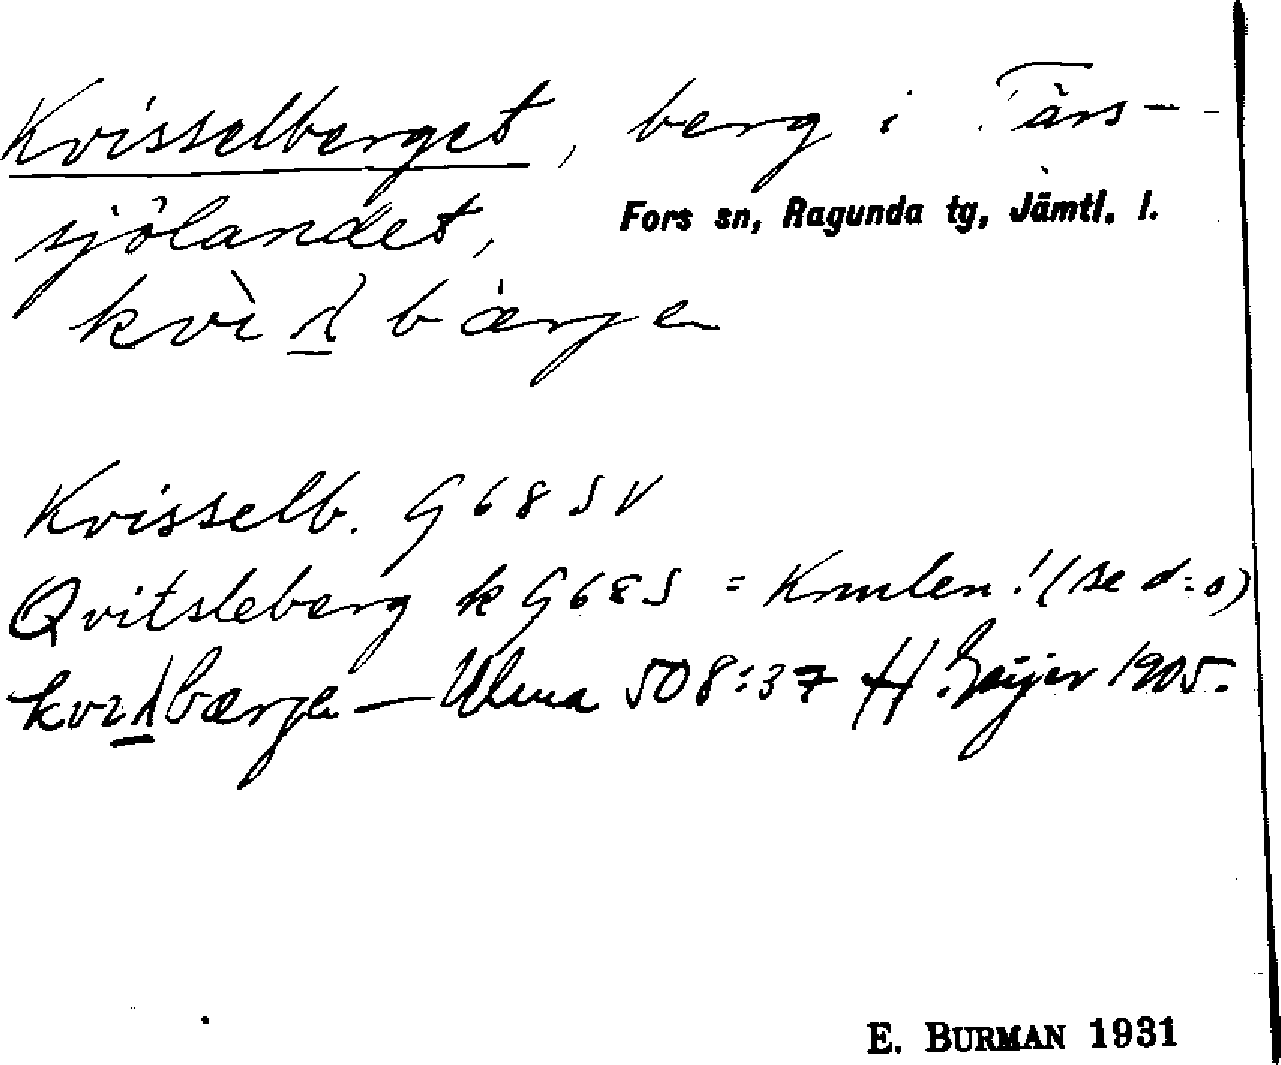 Kvisselberget, berg i Tärs-
sjölandet, Fors sn, Ragunda tg, Jämtl. l.
Kvisselb. G 68 SV
Qvitsleberg k G 68 S = Knulen! (se d:o)
Ulma 508:37 H. Geijer 1905.
E. BURMAN 1931